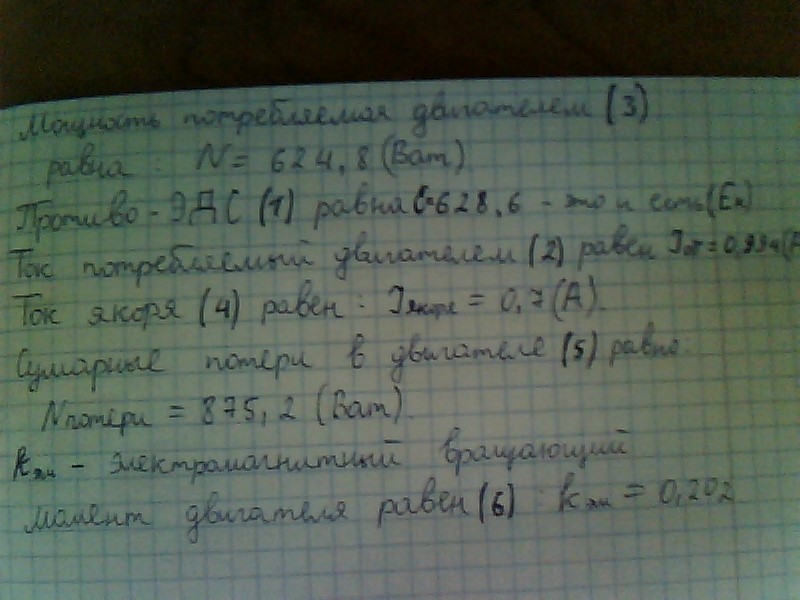 Мощность потребляемая двигателем (3)
равна : N = 624,8 (Ват)
Противо-ЭДС (1) равна 628,6 - это и есть (Ея)
Ток потребляемый двигателем (2) равен
Ток якоря (4) равен : Iякоря = 0,7 (А).
Сумарные потери в двигателе (5) равно
Nпотери = 875,2 (Ват).
kэм - электромагнитный вращающий
момент двигателя равен (6) : kэм = 0,202